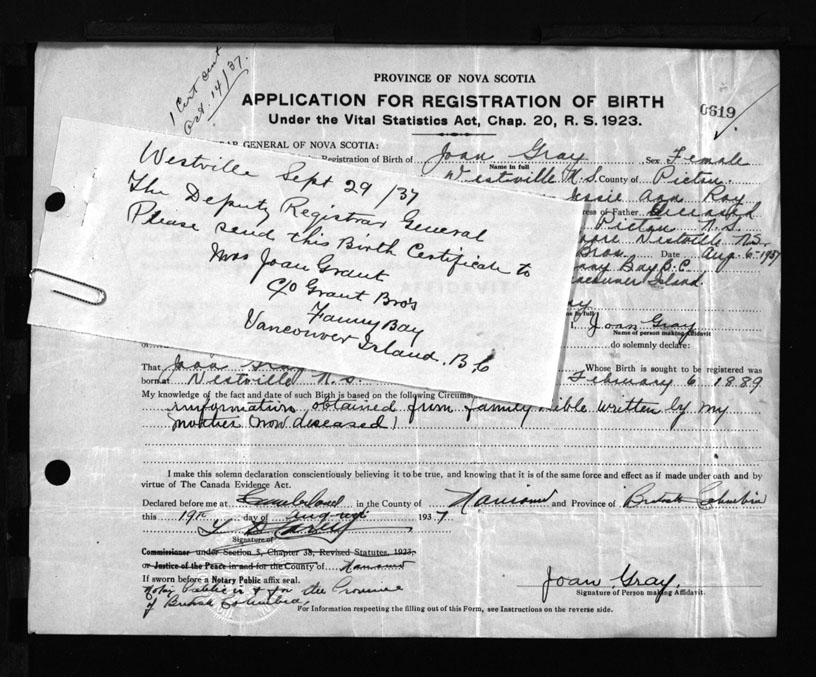 1 Cert sent
Oct. 14/37.
PROVINCE OF NOVA SCOTIA
APPLICATION FOR REGISTRATION OF BIRTH
Under the Vital Statistics Act, Chap. 20, R. S. 1923.
0619
GENERAL OF NOVA SCOTIA:
Registration of Birth of Joan Gray Sex Female
Name in full
Westville N.S. County of Pictou
Jessie Ann Roy
of Father Deceased
Pictou N.S.
Westville N.S.
Bros. Date Aug 6 1937
Bay B.C.
Vancouver Island.
Westville Sept 29/37
The Deputy Registrar General
Please send this Birth Certificate to
Mrs Joan Grant
c/o Grant Bro's
Fanny Bay
Vancouver Island. B C
I, Joan Gray
Name of person making affidavit
do solemnly declare:
That Joan Whose Birth is sought to be registered was
born at Westville N.S. February 6 1889
My knowledge of the fact and date of such Birth is based on the following
information obtained from family bible written by my
mother (now deceased)
I make this solemn declaration conscientiously believing it to be true, and knowing that it is of the same force and effect as if made under oath and by
virtue of The Canada Evidence Act.
Declared before me at Cumberland in the County of Nanaimo and Province of British Columbia
this 19th day of August 1937
Signature of
Commissioner under Section 5, Chapter 38, Revised Statutes, 1923,
or Justice of the Peace in and for the County of Nanaimo
If sworn before a Notary Public affix seal.
Notary Public in & for the Province
of British Columbia
Joan Gray.
Signature of Person making Affidavit.
For Information respecting the filling out of this Form, see Instructions on the reverse side.